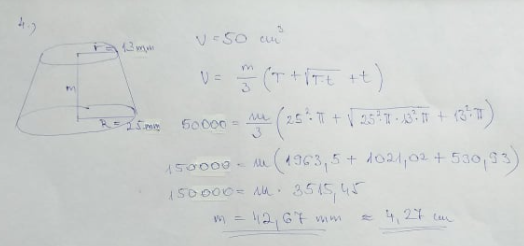 4.,
r = 13 mm
m
R = 25 mm
V = 50 cm³
V = m/3 (T + √(T·t) + t)
50000 = m/3 (25²·π + √(25²·π·13²·π) + 13²·π)
150000 = m (1963,5 + 1021,02 + 530,93)
150000 = m · 3515,45
m = 42,67 mm ≈ 4,27 cm